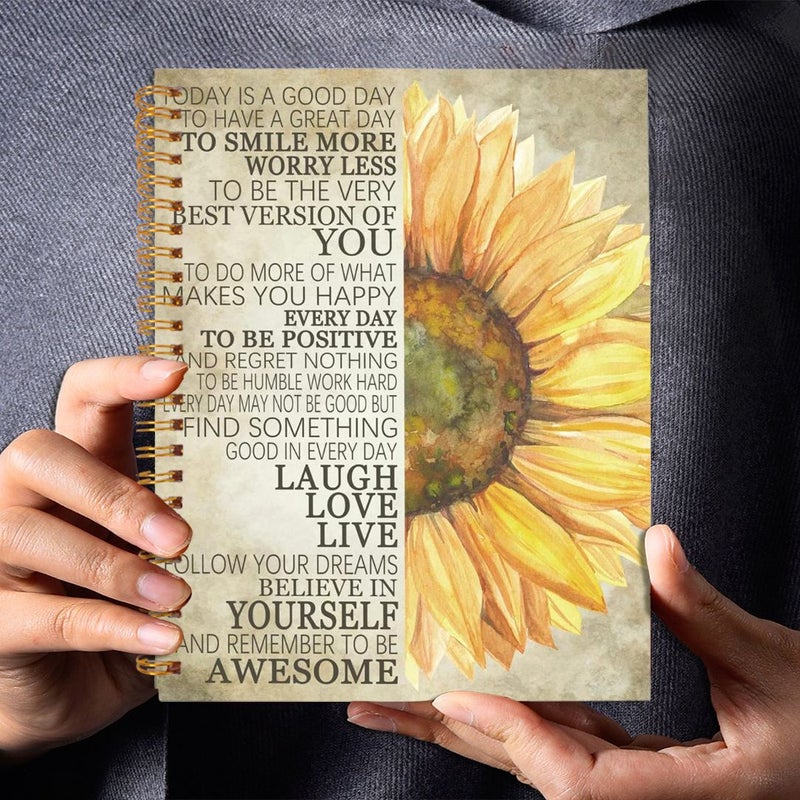 TODAY IS A GOOD DAY
TO HAVE A GREAT DAY
TO SMILE MORE
WORRY LESS
TO BE THE VERY
BEST VERSION OF
YOU
TO DO MORE OF WHAT
MAKES YOU HAPPY
EVERY DAY
TO BE POSITIVE
AND REGRET NOTHING
TO BE HUMBLE WORK HARD
EVERY DAY MAY NOT BE GOOD BUT
FIND SOMETHING
GOOD IN EVERY DAY
LAUGH
LOVE
LIVE
FOLLOW YOUR DREAMS
BELIEVE IN
YOURSELF
AND REMEMBER TO BE
AWESOME